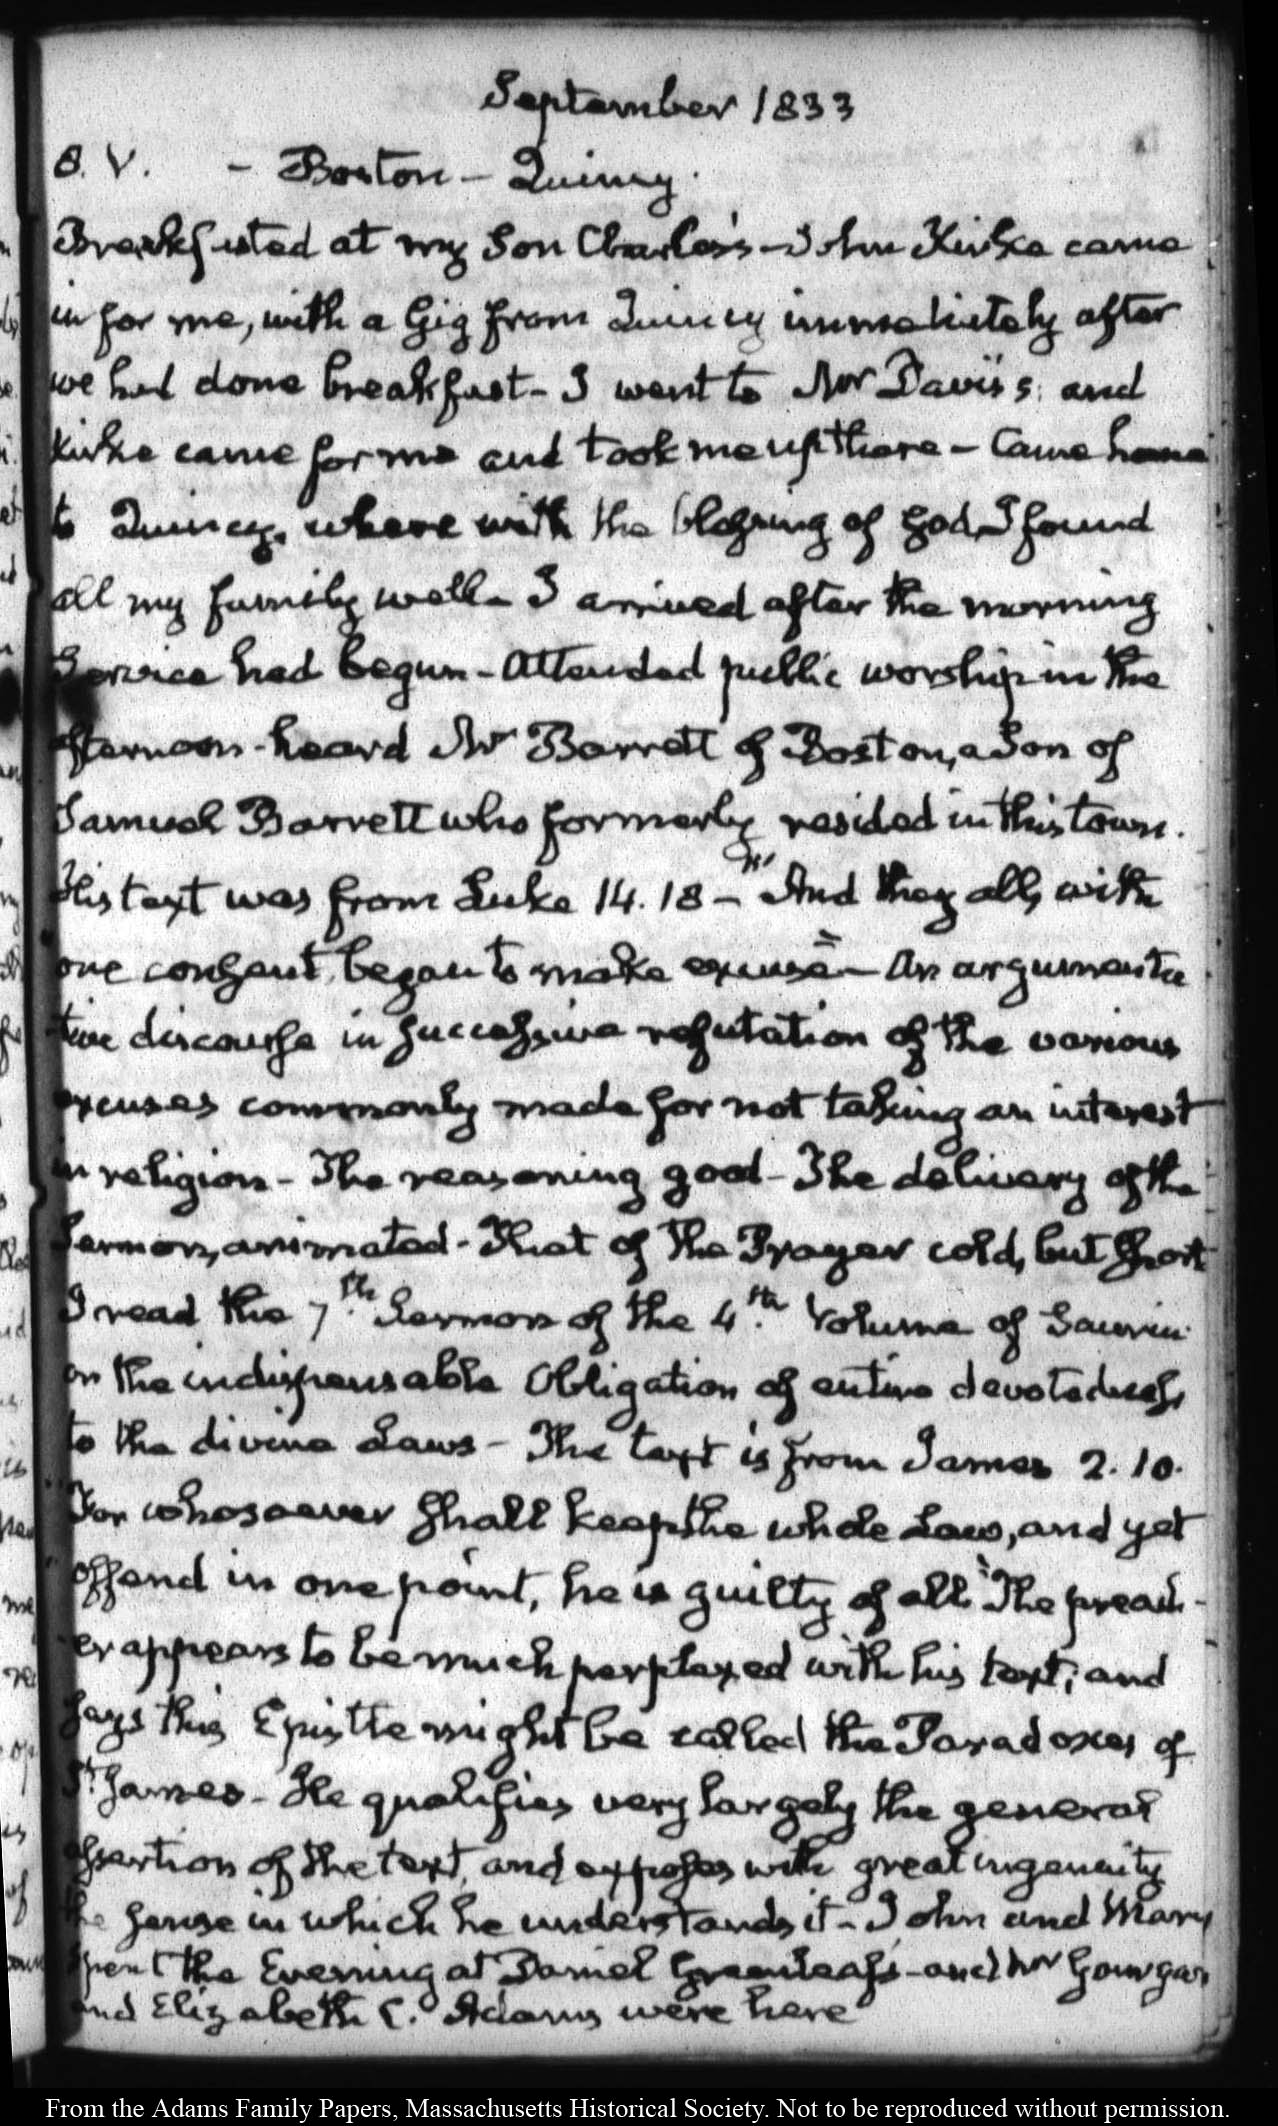 September 1833
8. V. - Boston - Quincy.
Breakfasted at my Son Charles's - John Kirke came
in for me, with a Gig from Quincy immediately after
we had done breakfast - I went to Mr Davis's; and
Kirke came for me and took me up there - Came home
to Quincy, where with the blessing of God, I found
all my family well - I arrived after the morning
Service had begun - Attended public worship in the
afternoon - heard Mr Barrett of Boston, a Son of
Samuel Barrett who formerly resided in this town.
His text was from Luke 14. 18 - "And they all, with
one consent, began to make excuse" - An argumenta
tive discourse in successive refutation of the various
excuses commonly made for not taking an interest
in religion - The reasoning good - The delivery of the
Sermon, animated - That of the Prayer cold, but short
I read the 7th. Sermon of the 4th. Volume of Saurin
on the indispensable Obligation of entire devotedness
to the divine Laws - The text is from James 2. 10.
For whosoever shall keep the whole Law, and yet
offend in one point, he is guilty of all" The preach-
er appears to be much perplexed with his text; and
says this Epistle might be called the Paradoxes of
St James - He qualifies very largely the general
assertion of the text, and exposes with great ingenuity
the sense in which he understands it - John and Mary
spent the Evening at Daniel Greenleaf's - and Mr Gourgas
and Elizabeth C. Adams were here
From the Adams Family Papers, Massachusetts Historical Society. Not to be reproduced without permission.